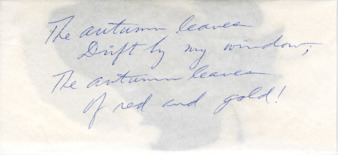 The autumn leaves
Drift by my window,
The autumn leaves
Of red and gold!